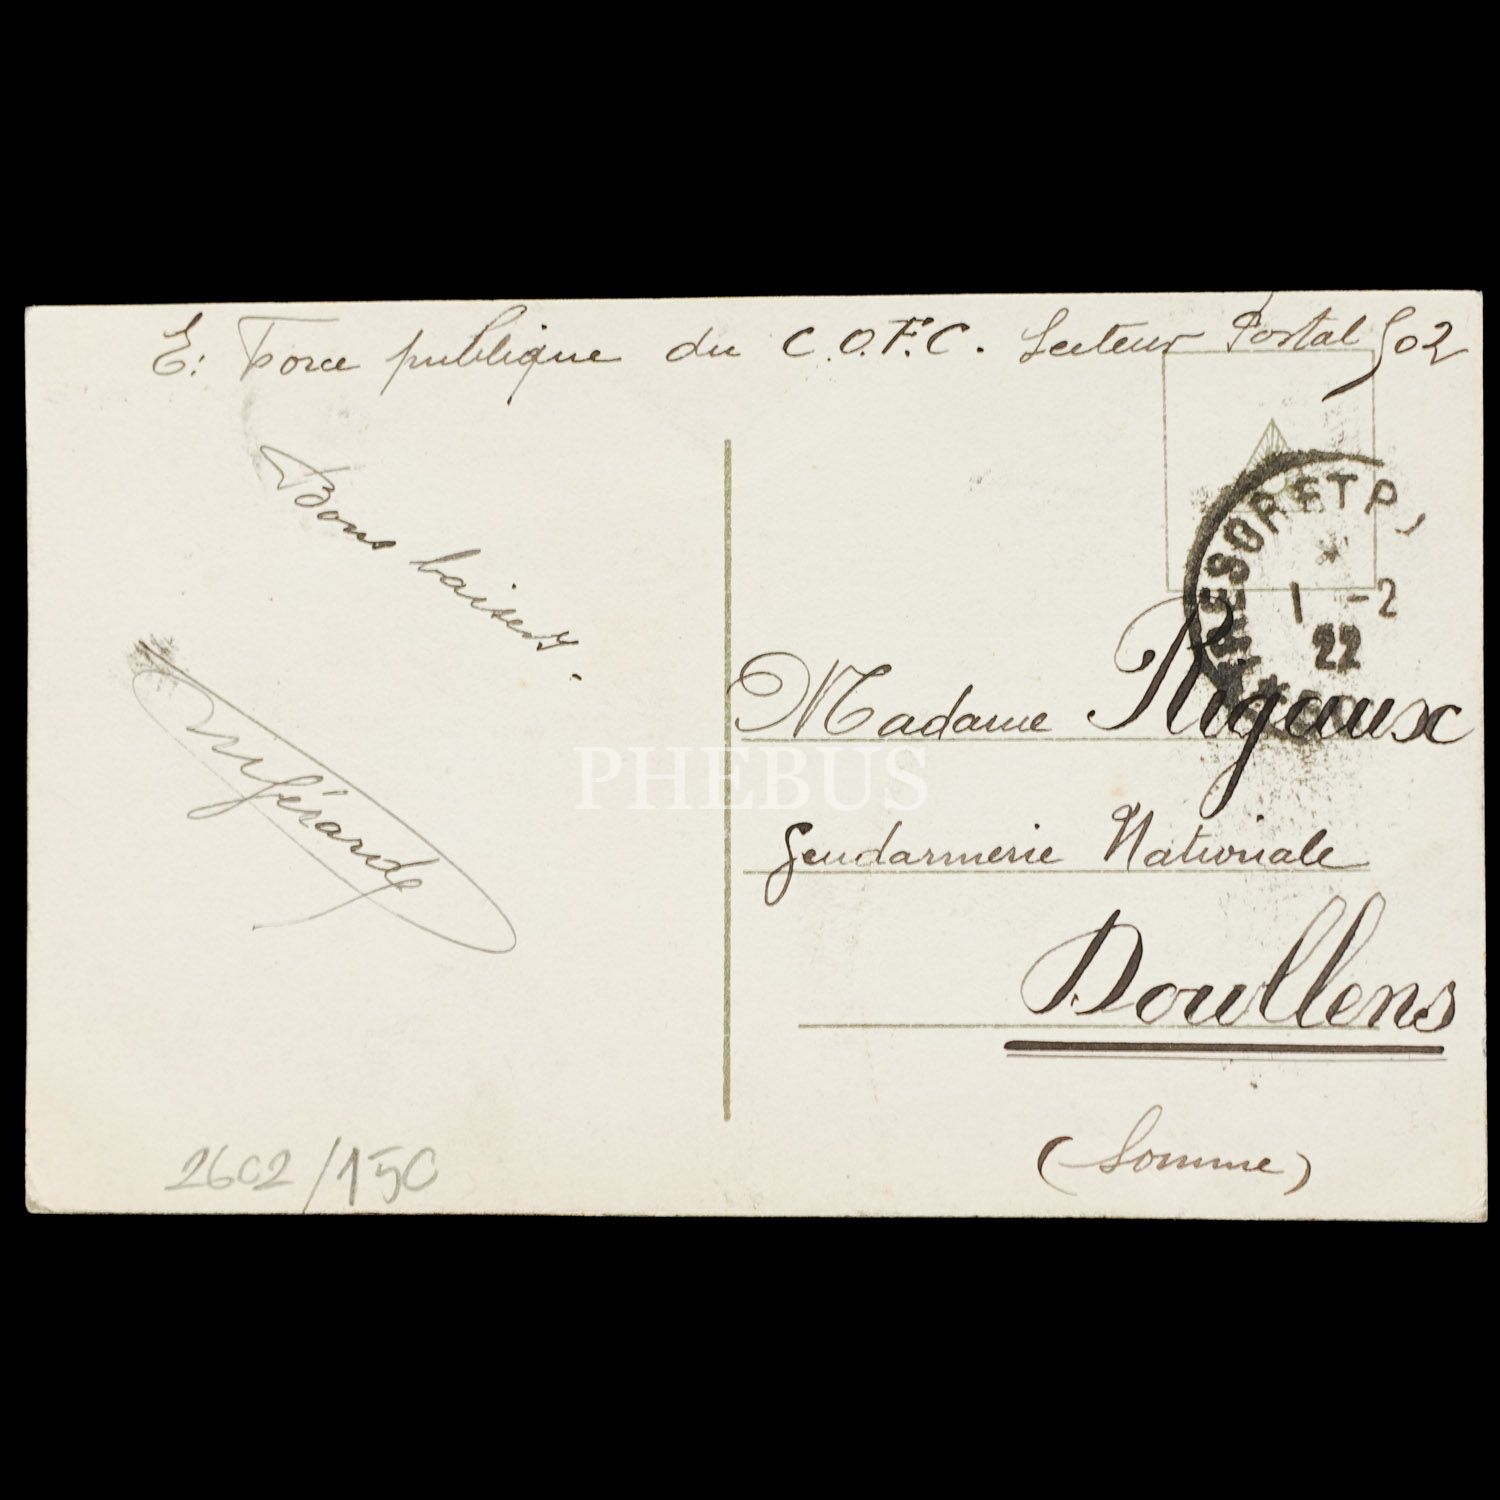 E: Force publique du C.O.F.C. Secteur Postal 502
Bons baisers.
TRESOR ET P
*
1 -2
22
Madame Rigaux
PHEBUS
Gendarmerie Nationale
Doullens
(Somme)
2602/150